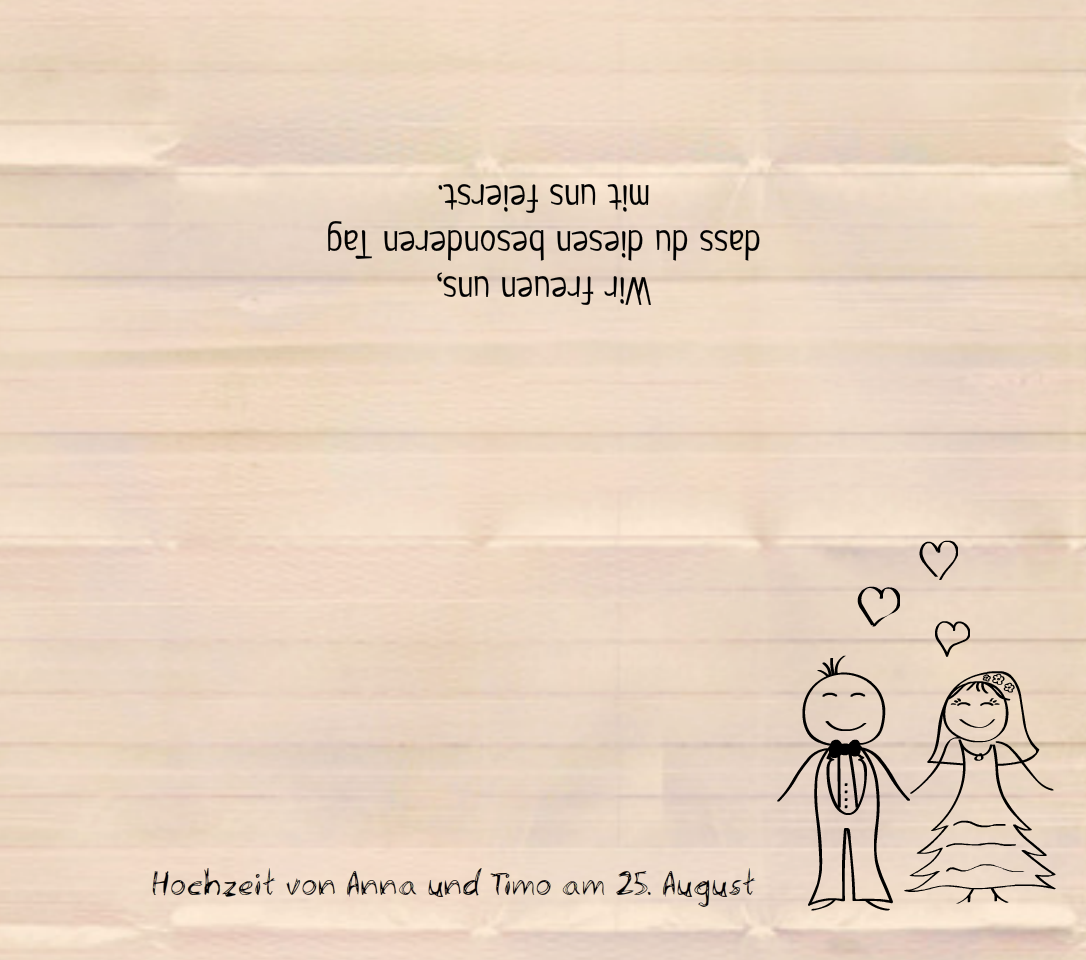 Wir freuen uns,
dass du diesen besonderen Tag
mit uns feierst.
Hochzeit von Anna und Timo am 25. August